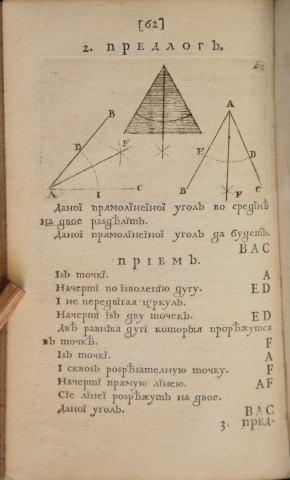 [62]
2. ПРЕДЛОГЪ.
62
B
D
F
A
I
C
A
E
D
B
F
C
Даної прямолінеїної уголъ во средїнѣ
на двое раздѣлїть.
Даної прямолінеїної уголъ да будеть.
BAC
ПРІЕМЪ.
Ізь точкї. A
Начерті по ізволенїю дугу. ED
І не передвїгая цїркуль.
Начерті їзь дву точекъ. ED
Двѣ равныя дугї которыя прорѣжутся
въ точкѣ. F
Ізь точкї. A
І сквозь розрѣзателную точку. F
Начерті прямую лїнею. AF
Сїе лїнеї розрѣжуть на двое.
Даної уголъ. BAC
3. ПРЕД-